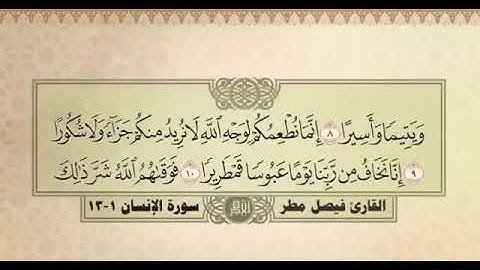 وَيَتِيمًا وَأَسِيرًا ٨ إِنَّمَا نُطْعِمُكُمْ لِوَجْهِ ٱللَّهِ لَا نُرِيدُ مِنكُمْ جَزَآءً وَلَا شُكُورًا
٩ إِنَّا نَخَافُ مِن رَّبِّنَا يَوْمًا عَبُوسًا قَمْطَرِيرًا ١٠ فَوَقَىٰهُمُ ٱللَّهُ شَرَّ ذَٰلِكَ
القارئ فيصل مطر سورة الإنسان ١-١٣